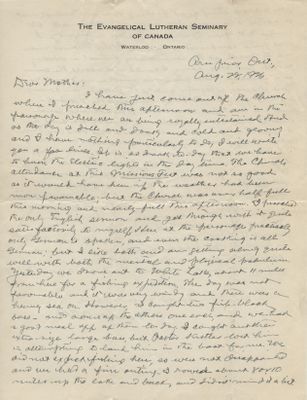 THE EVANGELICAL LUTHERAN SEMINARY
OF CANADA
WATERLOO - ONTARIO
Arnprior, Ont.,
Aug. 29, '26
Dear Mother:
I have just come out of the church
where I preached this afternoon and am in the
parsonage where we are being royally entertained. And
as the day is dull and and cold and gloomy
and I have nothing particularly to do, I will write
you a few lines. It is so dark to-day that we have
to burn the electric lights in the day time. The Church
attendance at this Missions Fest was not so good
as it would have been if the weather had been
more favorable, but the church was more than half full
this morning and nearly full this afternoon. I preached
the only English sermon and got through with it quite
satisfactorily to myself. Here at the parsonage practically
only German is spoken, and even the is all
German, but and are getting along quite
well with both the mental and physical pabulum.
Yesterday we drove out to White Lake, about 11 miles
from here for a fishing expedition. The day was not
favorable and it was very windy and there was a
heavy sea on. However, I caught six fish - black
bass - and some of the others one each, and we had
a good meal off of them to-day. I caught another
extra large bass but Pastor lost him
in attempting to land him in the boat for me. We
did not expect fishing here, so were not disappointed
and we had a fine outing. I rowed about 8 or 10
miles up the lake and back, and did not mind it a bit